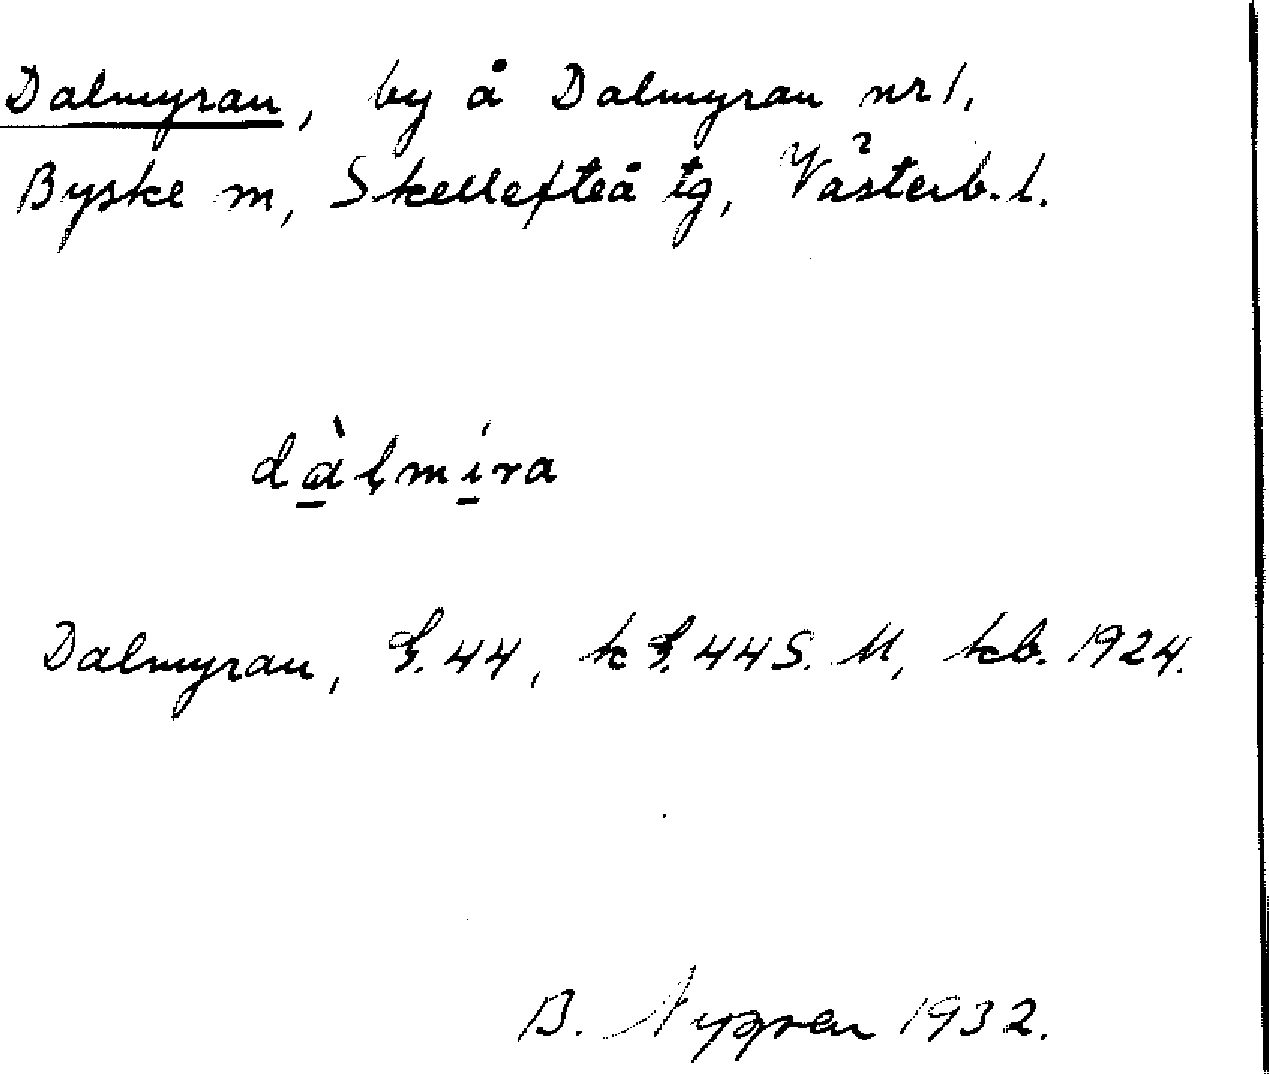 Dalmyran, by å Dalmyran nr 1,
Byske sn, Skellefteå tg, Västerb. l.
dàḷmíra
Dalmyran, G. 44, k G. 44 S. M, kb. 1924.
B. Nygren 1932.